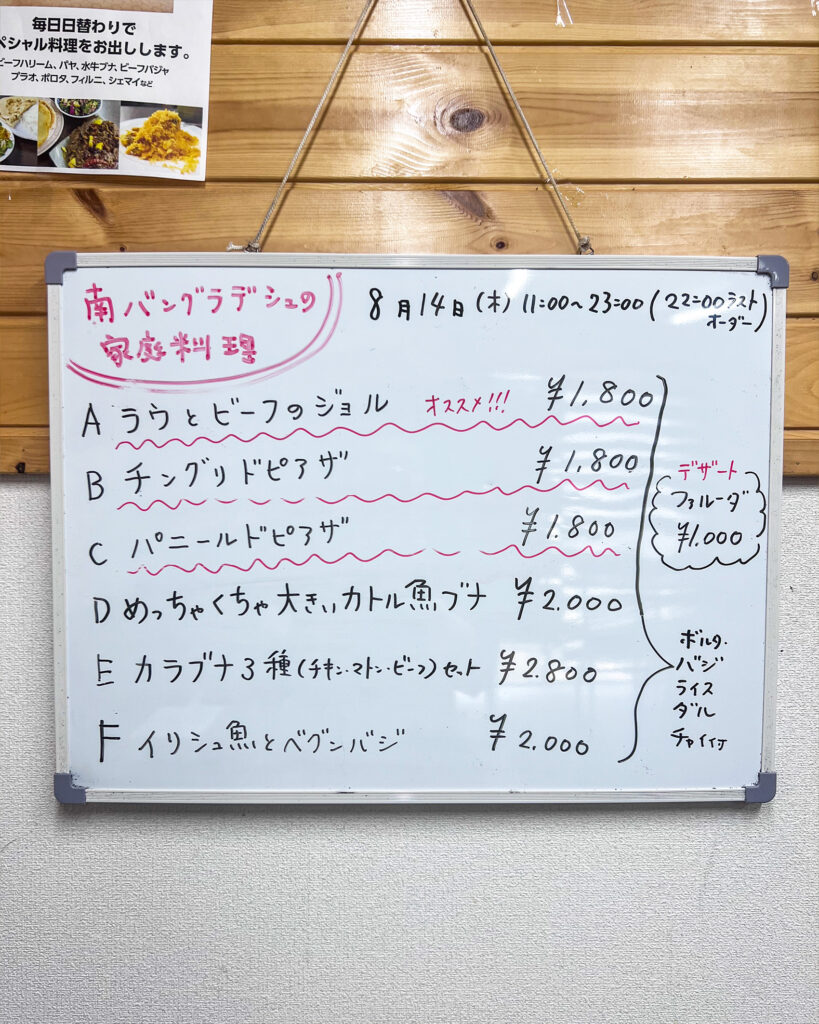 毎日日替わりで
ペシャル料理をお出しします。
ビーフハリーム、パヤ、水牛ブナ、ビーフバジャ
プラオ、ポロタ、フィルニ、シェマイなど
南バングラデシュの
家庭料理
8月14日(木) 11:00〜23:00(22:00ラスト
オーダー)
A ラウとビーフのジョル オススメ!!! ¥1,800
B チングリドピアザ ¥1,800
C パニールドピアザ ¥1.800
D めっちゃくちゃ大きいカトル魚ブナ ¥2.000
E カラブナ3種(チキン・マトン・ビーフ)セット ¥2.800
F イリシュ魚とベグンバジ ¥2.000
デザート
ファルーダ
¥1.000
ボルタ・
バジ
ライス
ダル
チャイ付